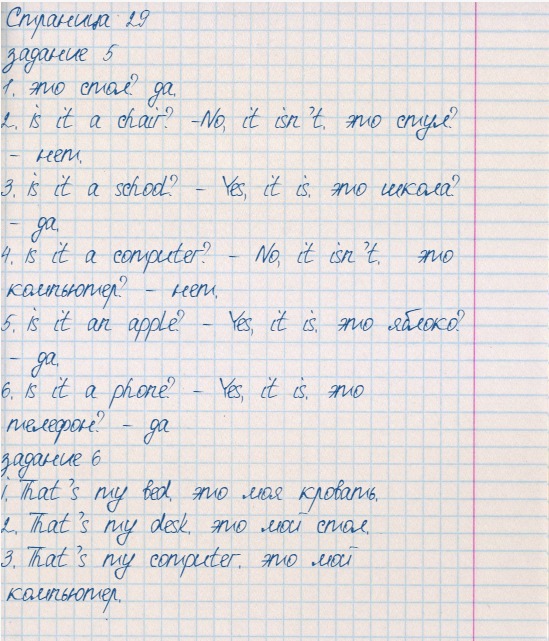 Страница 29
задание 5
1. это стол? да.
2. is it a chair? -No, it isn't. это стул?
- нет.
3. is it a school? - Yes, it is. это школа?
- да.
4. is it a computer? - No, it isn't. это
компьютер? - нет.
5. is it an apple? - Yes, it is. это яблоко?
- да.
6. is it a phone? - Yes, it is. это
телефон? - да
задание 6
1. That's my bed. это моя кровать.
2. That's my desk. это мой стол.
3. That's my computer. это мой
компьютер.